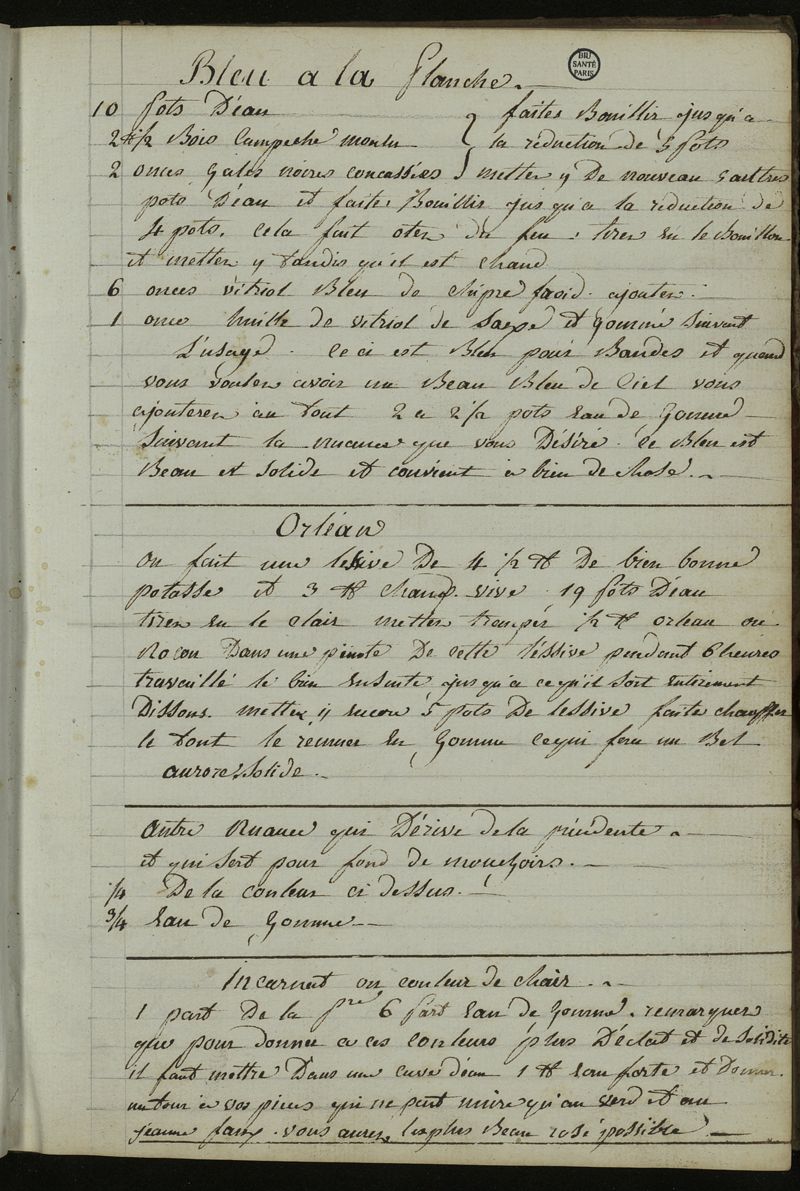 Bleu a la Planche.
BIU
SANTÉ
PARIS
10 pots D'éau } faites Bouillir jusqu'a
2 ℔ 1/2 Bois Campeche moulu } la réduction de 5 pots
2 onces Gales noires concassées } metter y De nouveau 5 auttres
pots D'éau et faites Bouillir jusqu'a la réduction de
4 pots. Cela fait oter du feu, tirer en le Bouillon
et metter y tandis qu'il est chaud
6 onces vitriol Bleu de chipre froid. ajouter.
1 once huille de vitriol de Saxe et Gommé suivant
L'usage. Ceci est Bleu pour Bandes et quand
vous vouler avoir un Beau Bleu de Ciel vous
ajouterer au tout 2 a 2 1/2 pots eau de Gomme
Suivant la nuance que vous Désiré. Ce Bleu est
Beau et Solide et convient a bien de chose.
Orléan
On fait une lessive De 4 1/2 ℔ De bien bonne
potasse et 3 ℔ chaux vive 19 pots D'éau
tirer en le clair metter trempér 1/2 ℔ orleau ou
Rocou Dans une pinte De cette lessive pendant 6 heures
travaillé le bien ensuite jusqu'a ce qu'il soit entirement
Dissous. metter y encore 5 pots De lessive faite chauffer
le tout le remuer en Gomme ce qui fera un Bel
aurore Solide.
Autre Nuance qui Dérive de la précédente
et qui sert pour fond de mouchoirs.
1/4 De la couleur ci dessus.
3/4 Eau de Gomme
Incarnat ou couleur de chair.
1 part De la pre 6 part eau de Gomme. remarquer
que pour donner a ces couleurs plus D'éclat et de Solidité
il faut mettre Dans une cuve d'éau 1 ℔ eau forte et Donner
un tour a vos pieces qui ne peut nuire qu'au verd et au
jeaune faux. vous aurer les plus Beau rosé possible